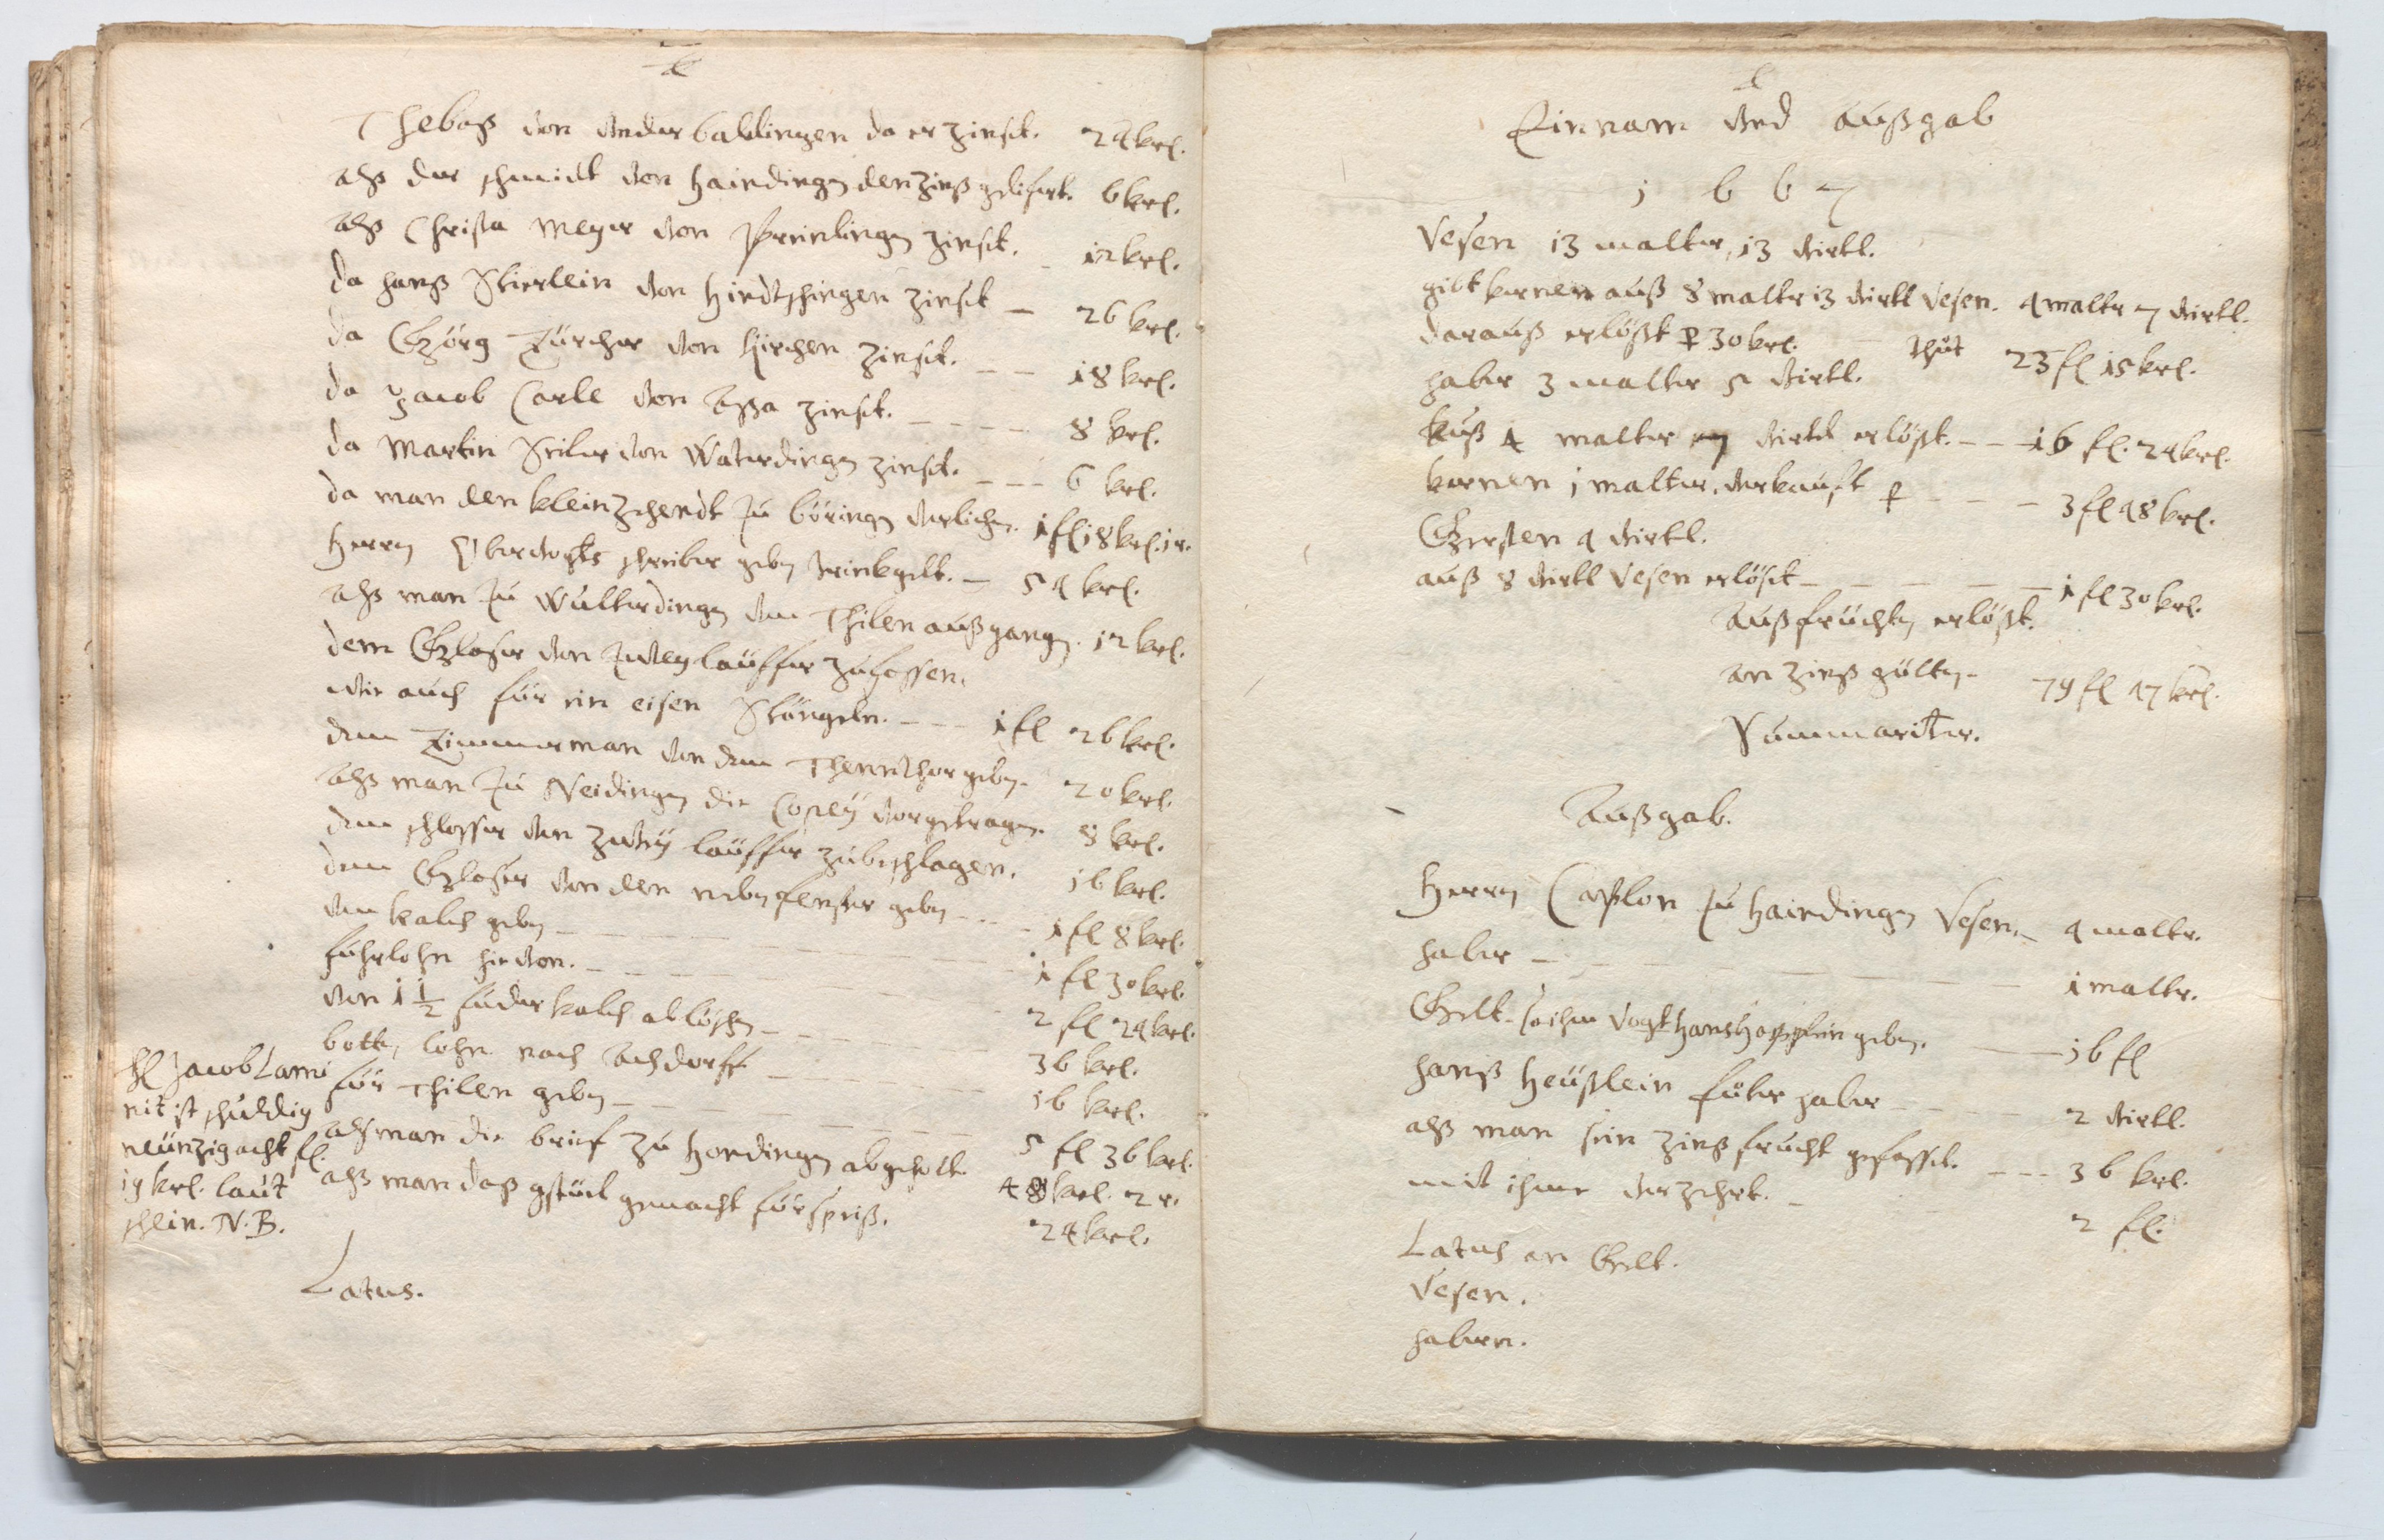 Thebaß von Underbaldingen da er zinßt. 24 krl.
alß der schmidt von Haindingen den zinß gelifert. 6 krl.
alß Christa Meyer von Pfreinlingen zinßt. 12 krl.
da Hanß Stierlein von Hindtschingen zinßt 26 krl.
da Geörg Zürcher von Kirchen zinßt. 18 krl.
da Jacob Carle von zinßt. 8 krl.
da Martin von Waterdingen zinßt. 6 krl.
da man den kleinzehendt zu böringen verlichen. 1 fl 18 krl. 1 r.
Herrn Obervogts schreiber geben trinkgelt. 54 krl.
alß man zu Wulterdingen den Thilen außgangen. 12 krl.
dem Glaser von zwey läuffer zufassen.
wie auch für ein eisen Stängelin. 1 fl 26 krl.
dem Zimmerman von dem Thennthor geben. 20 krl.
alß man zu Neidingen die Copeÿ vorgetragen. 8 krl.
dem schlosser von zweÿ läuffer zubeschlagen. 16 krl.
dem Glaser von den neben fenster geben 1 fl 8 krl.
vm kalch geben 1 fl 30 krl.
fuhrlohn hievon. 2 fl 24 krl.
von 1 1/2 fuder kalch ablöschen 36 krl.
botten lohn nach Achdorff 16 krl.
für Thilen geben 5 fl 36 krl.
alß man die brief zu Hondingen abgeholt. 48 krl. 2 r.
alß man daß gstüel gemacht für speiß. 24 krl.
Hl Jacob Lami
nit ist schuldig
neünzig acht fl.
19 krl. laut
schein. N.B.
Latus.
Einnam vnd Außgab
1667
Vesen 13 malter, 13 viertl.
gibt kernen auß 8 malter 13 viertl Vesen. 4 malter 7 viertl.
darauß erlößt p 30 krl. thut 23 fl 15 krl.
haber 3 malter 5 viertl.
Auß 4 malter viertel erlößt. 16 fl. 24 krl.
kernen 1 malter, verkauft p 3 fl 48 krl.
Gersten 4 viertl.
auß 8 viertl Vesen erlößt 1 fl 30 krl.
Auß früchten erlößt.
an zinß gülten 79 fl 47 krl.
Summariter.
Außgab.
Herrn Caplon zu Haindingen Vesen. 4 malter.
haber 1 malter.
Gelt so ihm Vogt Hans geben. 16 fl
Hanß Heüßlein fuhr haber 2 viertl.
alß man sein zinß frucht gefasst. 36 krl.
mit ihme verzehrt. 2 fl.
Latus an Gelt.
Vesen.
habern.